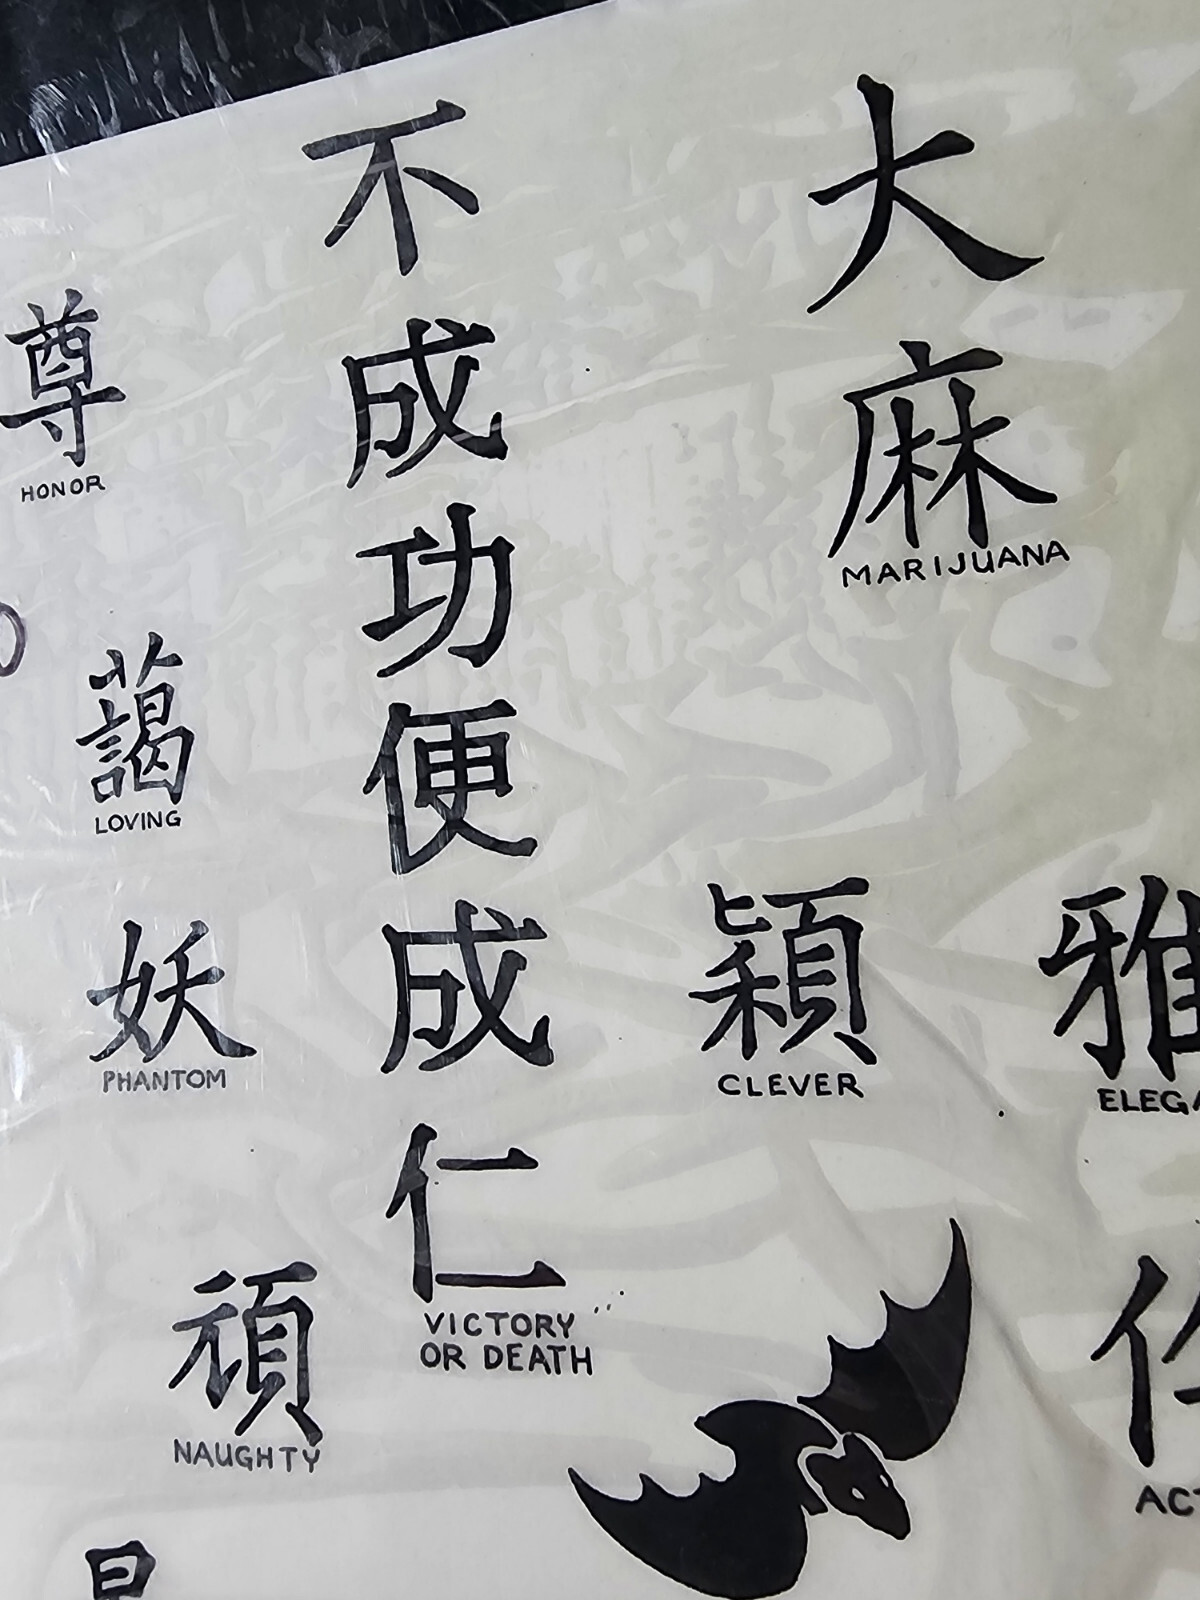 尊
HONOR
藹
LOVING
妖
PHANTOM
頑
NAUGHTY
不成功便成仁
VICTORY
OR DEATH
大麻
MARIJUANA
穎
CLEVER
雅